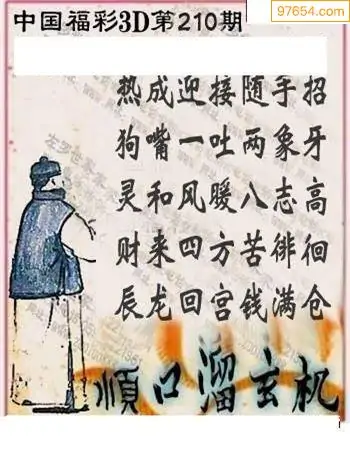 97654.com
中国福彩3D第210期
热成迎接随手招
狗嘴一吐两象牙
灵和风暖八志高
财来四方苦徘徊
辰龙回宫钱满仓
順口溜玄机